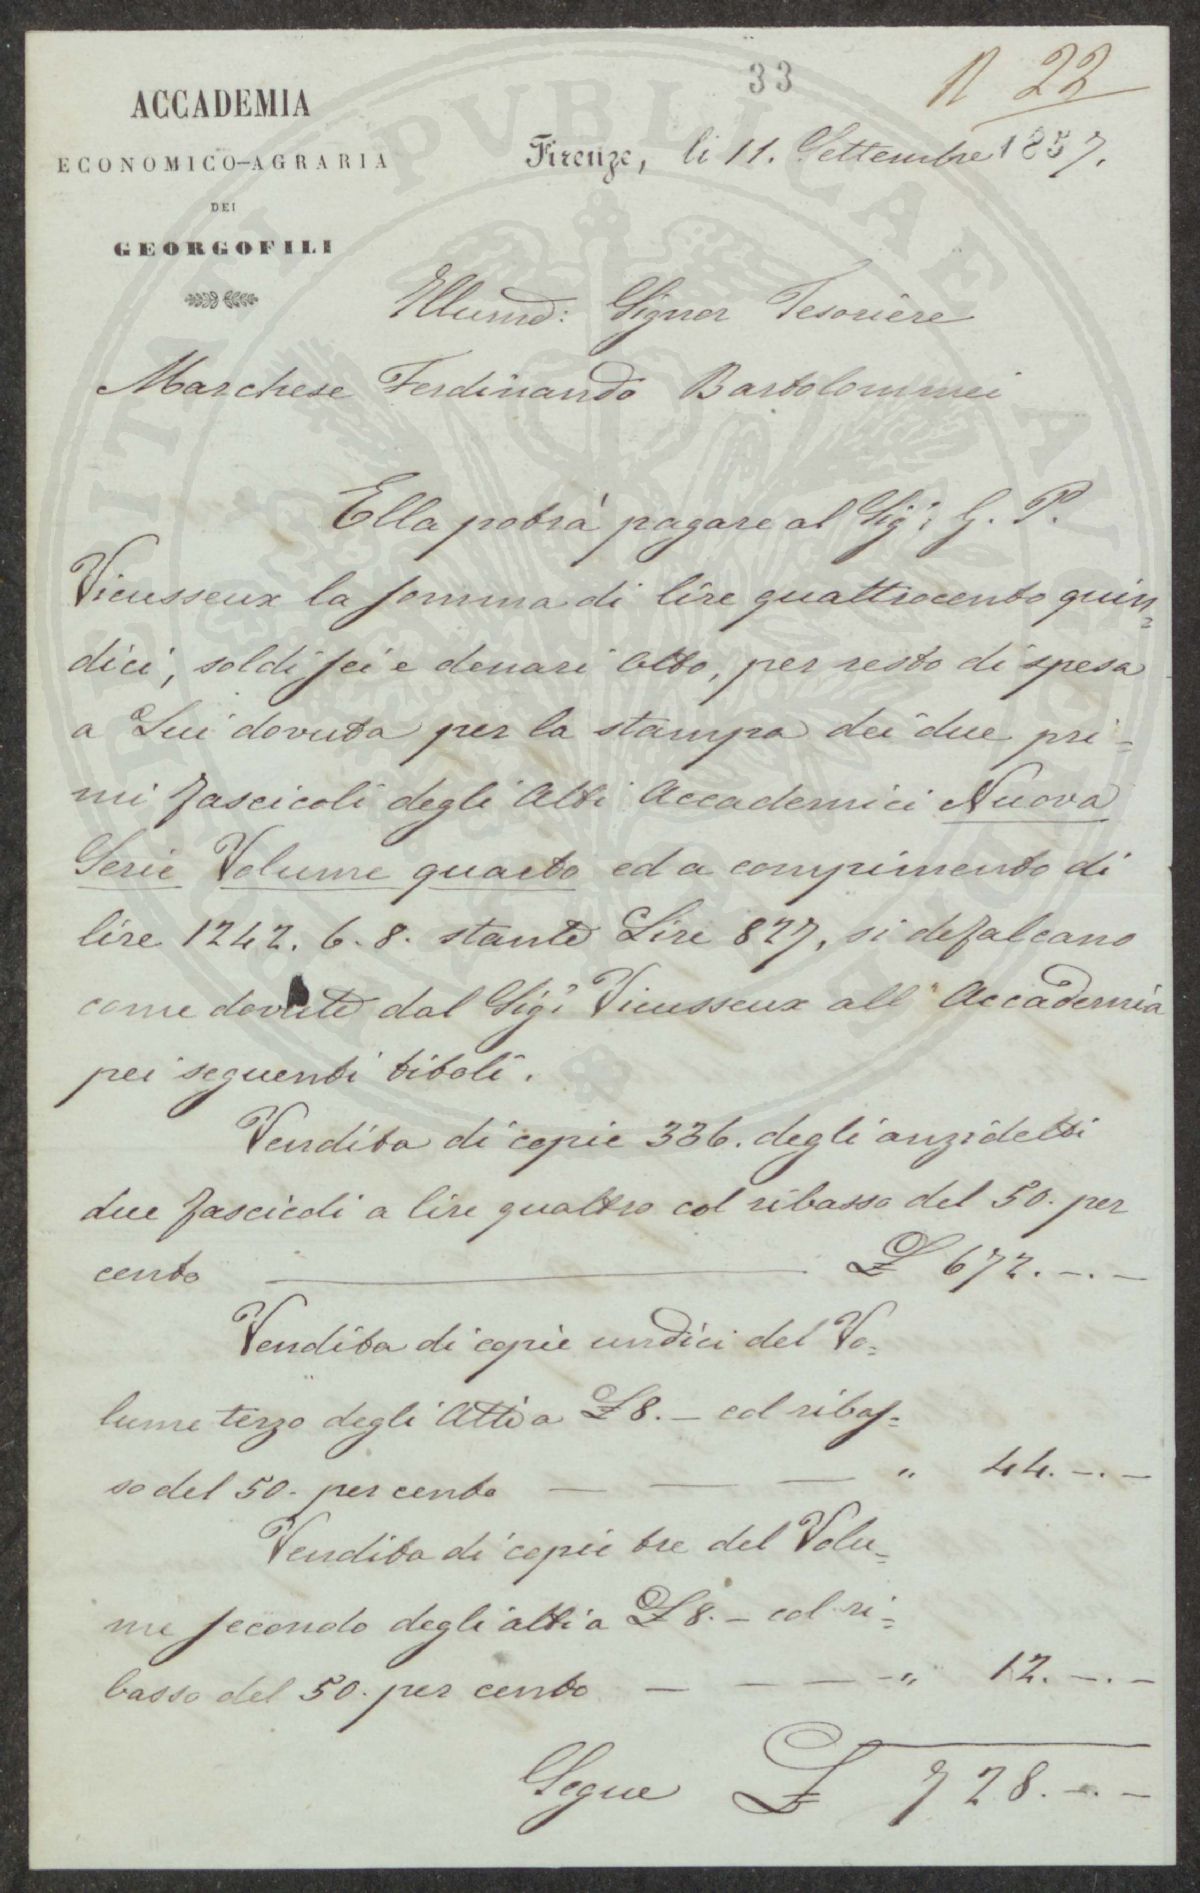 33
N 22
ACCADEMIA
ECONOMICO-AGRARIA
DEI
GEORGOFILI
Firenze, li 11. Settembre 1857.
Illumo: Signor Tesoriere
Marchese Ferdinando Bartolommei
Ella potrà pagare al Sigr: G. P.
Vieusseux la somma di lire quattrocento quin=
dici, soldi sei e denari otto, per resto di spesa
a Lui dovuta per la stampa dei due pri=
mi fascicoli degli Atti Accademici Nuova
Serie Volume quarto ed a compimento di
lire 1242. 6. 8. stante Lire 827, si defalcano
come dovute dal Sigr Vieusseux all' Accademia
pei seguenti titoli.
Vendita di copie 336. degli anzidetti
due fascicoli a lire quattro col ribasso del 50. per
cento £ 672. -. -
Vendita di copie undici del Vo=
lume terzo degli Atti a £ 8. - col ribas=
so del 50. per cento — — — " 44. -. -
Vendita di copie tre del Volu=
me secondo degli atti a £ 8. - col ri=
basso del 50. per cento — — — — " 12. -. -
Segue £ 728. -. -